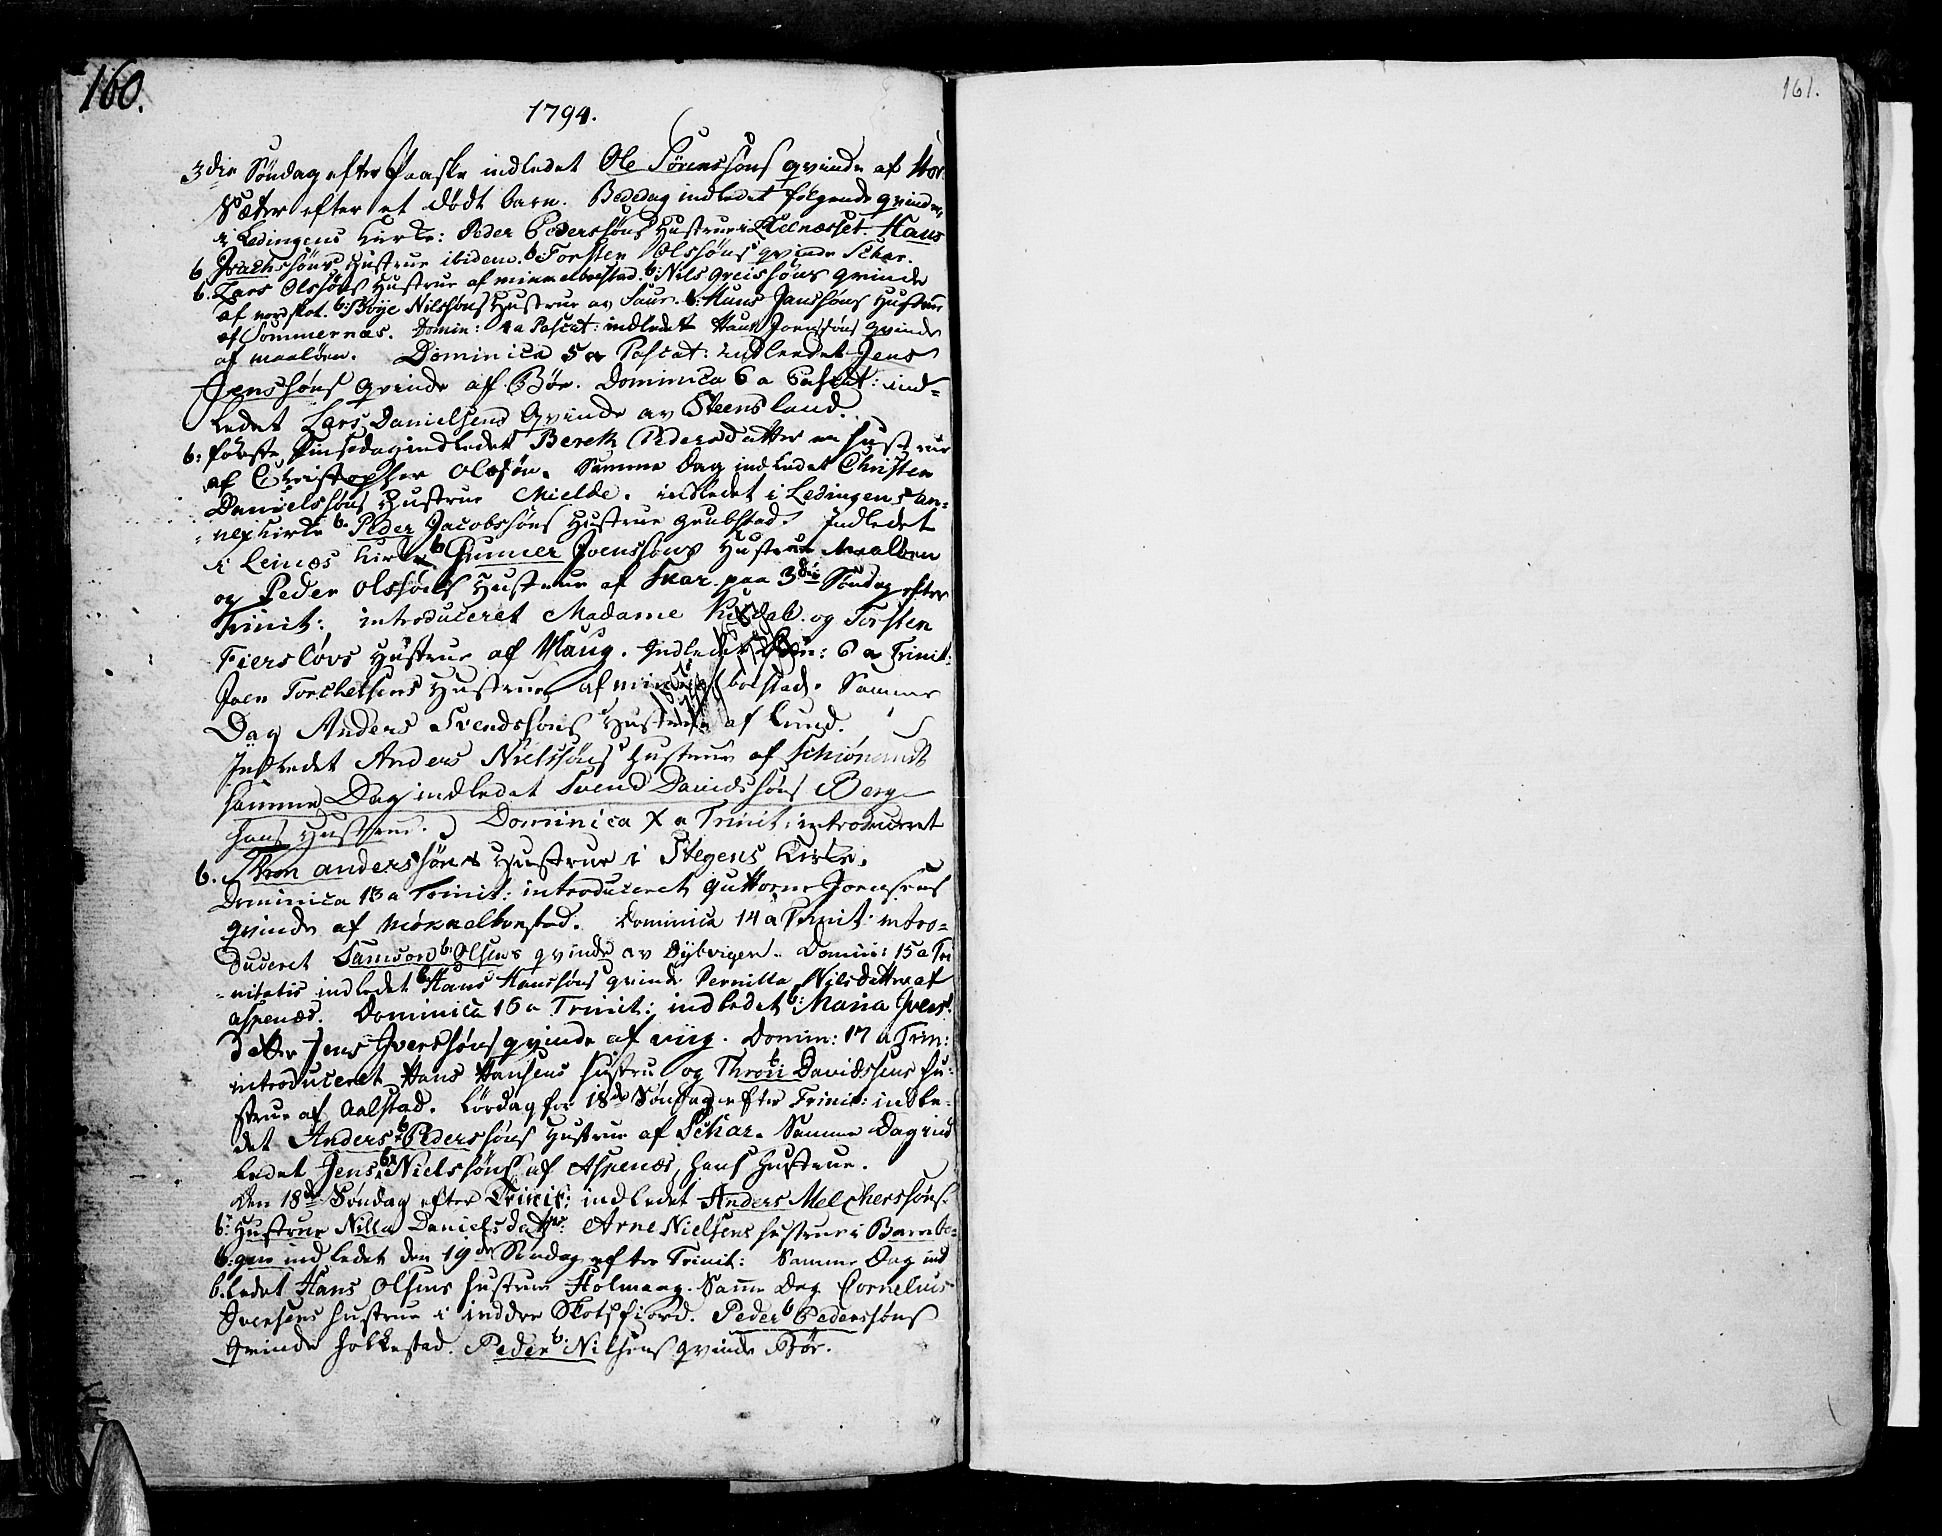 160.
161.
1794.
3die Søndag efter Paaske indledet Ole Sørenssøns qvinde af Nor
Sæter efter et dødt barn. Bededag indledet følgende qvinder,
i Ledingens Kirke: Peder Pederssøns Hustrue i Hans
b. Hustrue ibidem. b. Torsten Olssøns qvinde Schar.
b. Lars Olssøns Hustrue af b: Nils qvinde
af nordskot. b: Boye Nilssøns Hustrue av b: Hans Janssøns Hustrue
af Sommernæs. Domin: 4 a Pascat: indledet Hans Joenssøns qvinde
af maaløen. Dominica 5 a Pascat: indleedet Jens
Jenssøns qvinde af Bøe. Dominica 6 a Pascat: ind-
ledet Lars Danielsens Qvinde av Steensland.
b: første Pinsedag indledet Berek Pedersdatter en hustrue
af Christopher Olssøn. Samme Dag indledet Christen
Danielssøns Hustrue Mielde. indledet i Ledingens an-
nexkirke b. Peder Jacobssøns Hustrue grubstad. Indledet
i Leines Kirke b Gunner Joenssøns Hustrue Maaløen
og Peder Olssøns Hustrue af Skar. paa 3die Søndag efter
Trinit: introduceret Madame og Torsten
Hustrue af Haug. Indledet Dom: 6 a Trinit:
Joen Torchelsens Hustrue af Samme
Dag Anders Svendssøns Hustrue af Lund.
Indledet Anders Nielssøns Hustrue af
samme Dag indledet Svend Davidssøns Berg
hans Hustrue. Dominica X a Trinit: introducret
b. Thron anderssøns Hustrue i Stegens Kirke.
Dominica 13 a Trinit: introduceret Guttorm Joensens
qvinde af Dominica 14 a Trinit: intro-
duceret Samson b: Olsens qvinde av Dybvigen. Domin: 15 a Tri
nitatis indledet b Hans Hanssøns qvinde Pernilla Nilsdatter af
aspenæs. Dominica 16 a Trinit: indledet b: Maria Ivers
datter Jens Iverssøns qvinde af viig. Domin: 17 a Trin:
introduceret Hans Hansens hustru og Thron Davidssens hu-
strue af Aalstad. Lørdag for 18de Søndag efter Trinit: indle-
det Anders b Pederssøns Hustrue af Schar. Samme Dag ind
ledet Jens b: Nielssøns af Aspenæs, hans Hustrue.
den 18de Søndag efter Trinit: indledet Anders Melcherssøns
b: Hustrue Nilla Danielsdatter. Arne Nielsens hustrue i
b: indledet den 19de Søndag efter Trinit: Samme Dag ind
b. ledet Hans Olsens hustrue Holmaag. Samme Dag Cornelius
Iversens hustrue i inddre Skotsfiord. Peder b Pederssøns
Qvinde holkestad. Peder b: Nilsens qvinde Bøe.